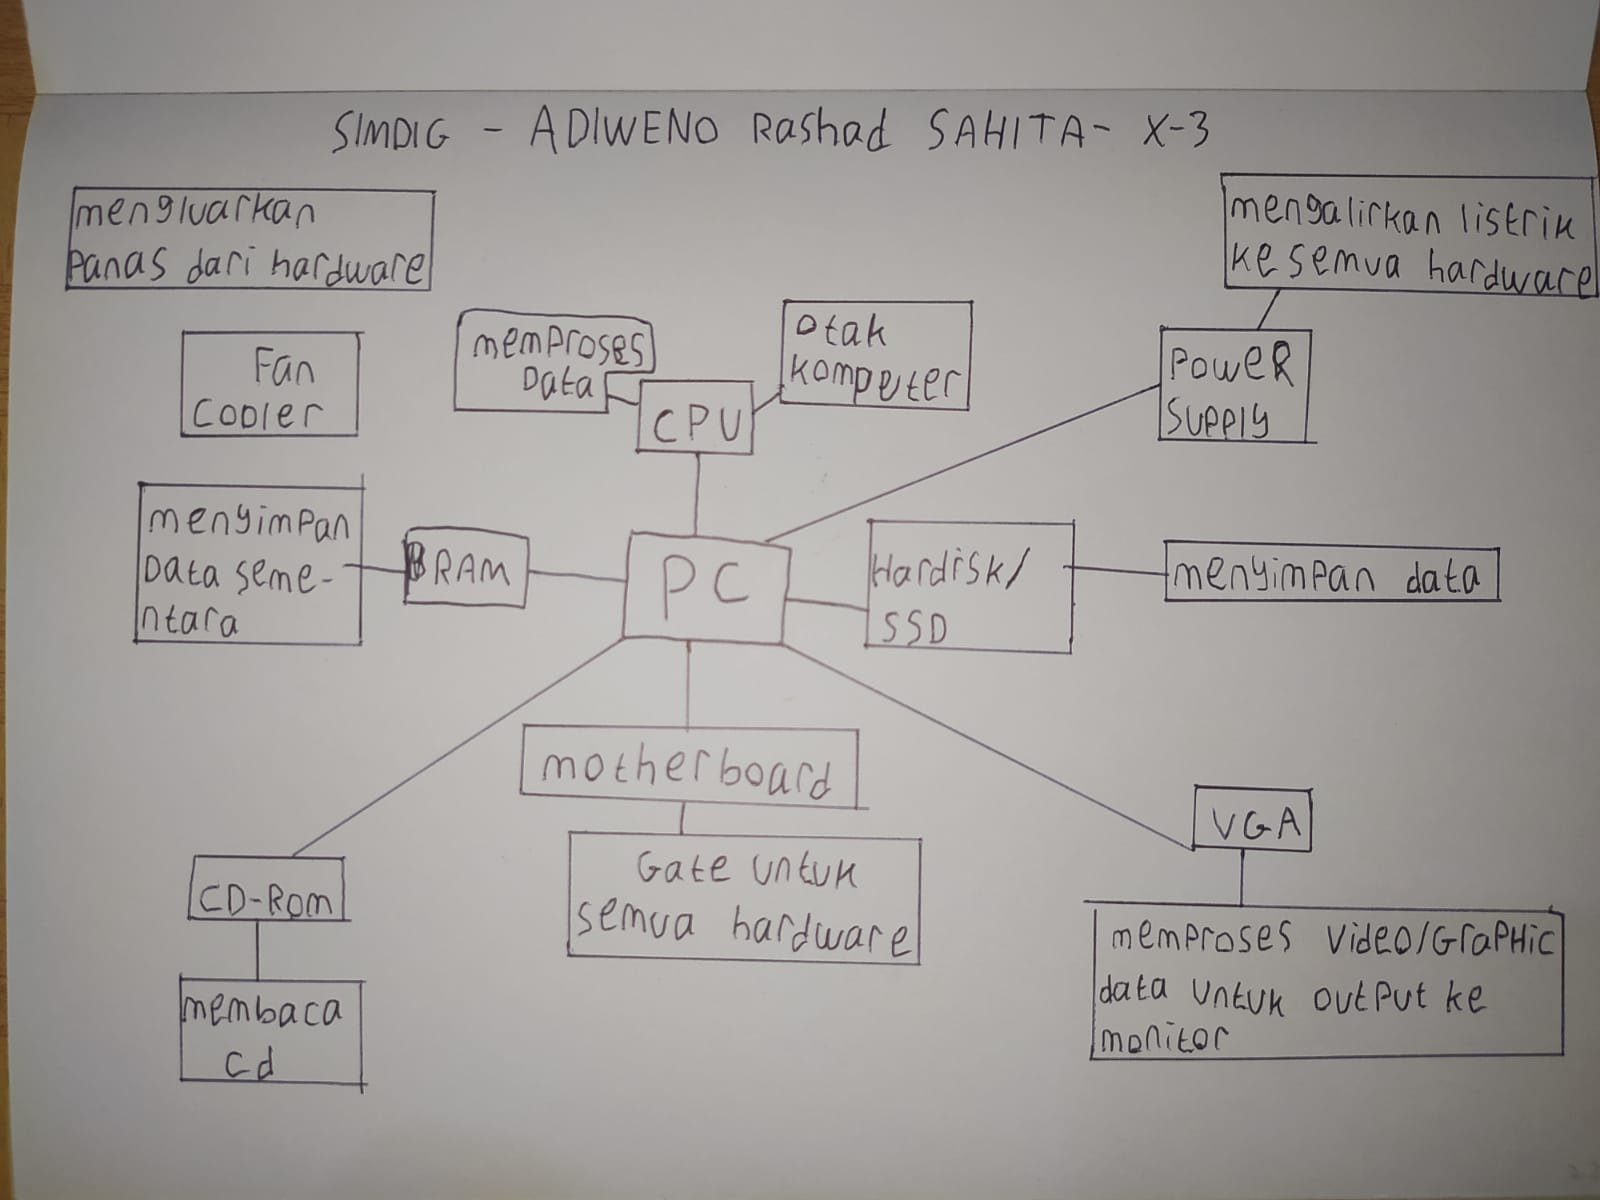 SIMDIG - ADIWENO Rashad SAHITA- X-3
mengluarkan
panas dari hardware
Fan
cooler
memproses
Data
CPU
otak
komputer
mengalirkan listrik
ke semua hardware
Power
Supply
menyimpan
Data seme-
ntara
RAM
PC
Hardisk/
SSD
menyimpan data
motherboard
Gate untuk
semua hardware
CD-Rom
membaca
Cd
VGA
memproses video/GraPHic
data untuk output ke
monitor